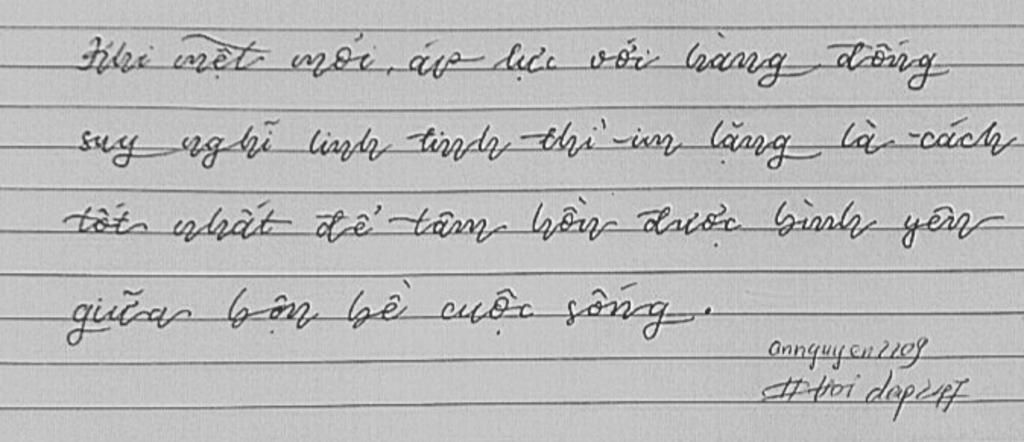 Khi mệt mỏi, áp lực với hàng đống
suy nghĩ linh tinh thì im lặng là cách
tốt nhất để tâm hồn được bình yên
giữa bộn bề cuộc sống.
annguyen2209
#Hoi dap247